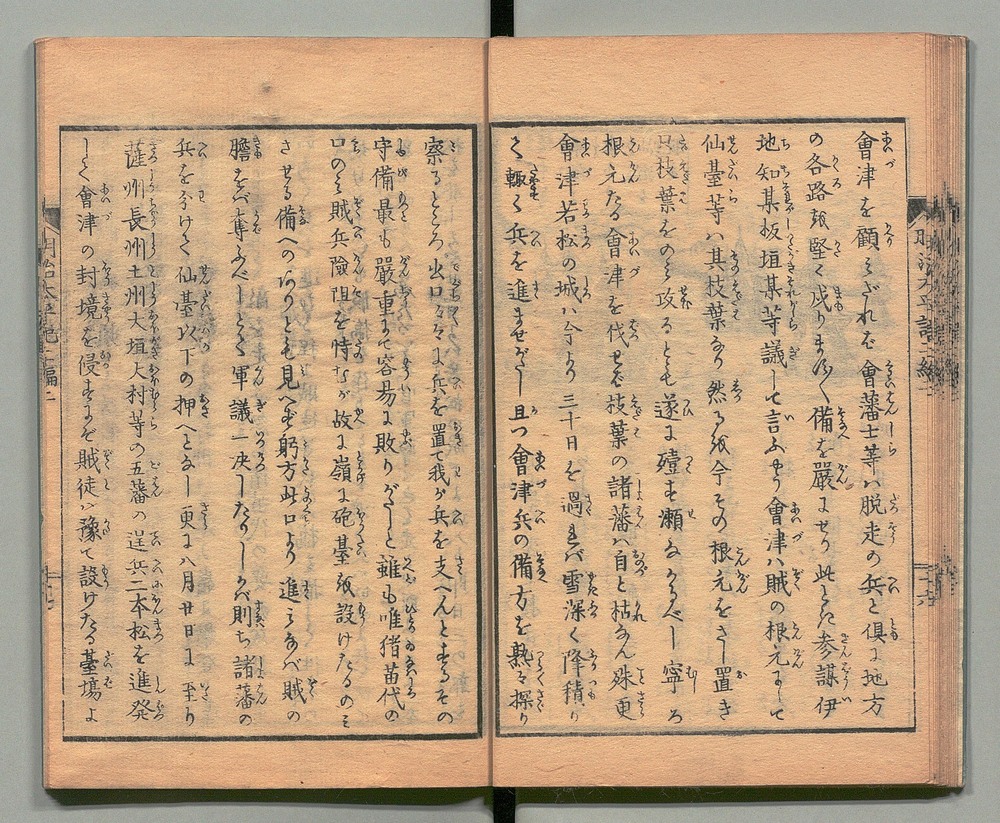 會津を顧みざれバ會藩士等ハ脱走の兵と倶に地方
の各路を堅く戍りますく備を嚴にせり此とき参謀伊
地知某板垣某等議して言ふやう會津ハ賊の根元にして
仙臺等ハ其枝葉なり然るを今その根元をさし置き
只枝葉をのミ攻るとも遂に殪す瀬なかるべし寧ろ
根元たる會津を伐せバ枝葉の諸藩ハ自と枯なん殊更
會津若松の城ハ今より三十日を過れバ雪深く降積り
て輙く兵を進ませがたし且つ會津兵の備方を熟々探り
察るところ出口々々に兵を置て我が兵を支へんとするその
守備最も嚴重にて容易に敗りがたしと雖も唯猪苗代の
口のミ賊兵險阻を恃むが故に嶺に砲臺を設けたるのミ
させる備へのありとも見へず躬方此口より進ミなバ賊の
膽をバ奪ふべしとて軍議一决したりしかバ則ち諸藩の
兵を分けて仙臺以下の押へとなし更に八月廿日に至り
薩州長州土州大垣大村等の五藩の逞兵二本松を進發
して會津の封境を侵すを賊徒ハ豫て設けたる臺場よ
明治太平記二編二